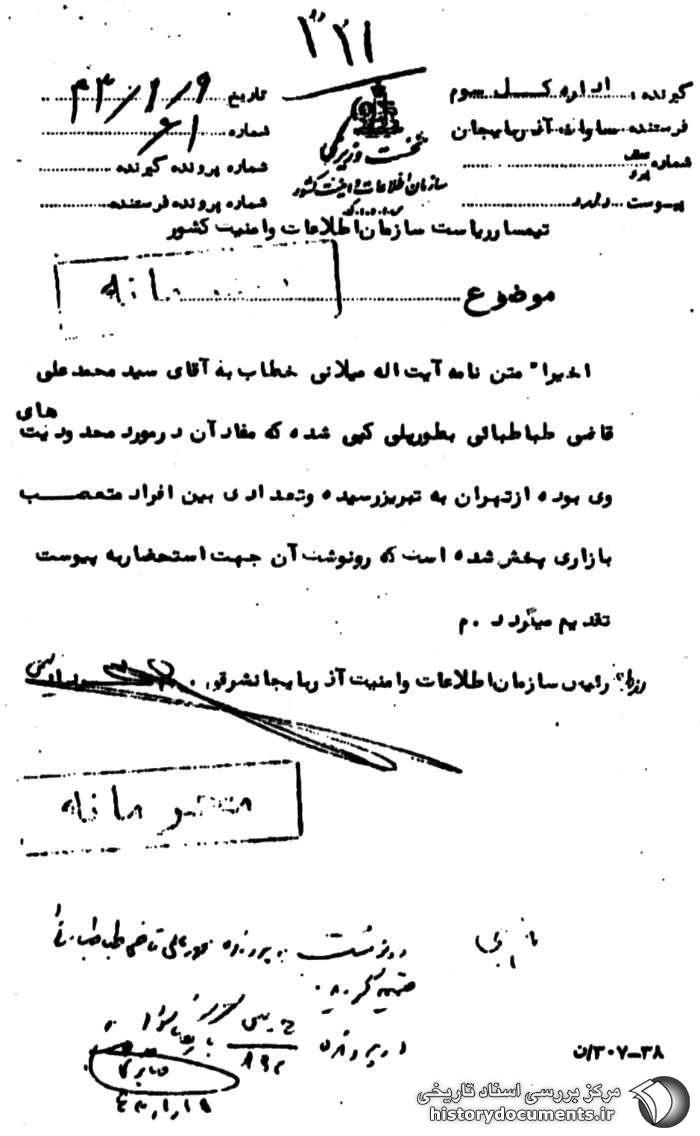 ۳۲۱
گیرنده: اداره کل سوم
فرستنده ساواک آذربایجان
شماره
پیوست دارد
نخست وزیری
سازمان اطلاعات و امنیت کشور
س.ا.و.ا.ک
تاریخ ۴۳/۱/۹
شماره ۶۱
شماره پرونده گیرنده
شماره پرونده فرستنده
تیمسار ریاست سازمان اطلاعات و امنیت کشور
موضوع
اخیرا" متن نامه آیت اله میلانی خطاب به آقای سید محمد علی
قاضی طباطبائی بطور پلی کپی شده که مفاد آن در مورد محدودیت های
وی بوده از تهران به تبریز رسیده و تعدادی بین افراد متعصب
بازاری پخش شده است که رونوشت آن جهت استحضار به پیوست
تقدیم میگردد .م
رئیس سازمان اطلاعات و امنیت آذربایجانشرقی
محرمانه
بایگانی
رونوشت به پرونده محمد علی قاضی طباطبائی
ضمیمه گردد.
در پرونده
۳۸–۳۰۷/ن
مرکز بررسی اسناد تاریخی
historydocuments.ir